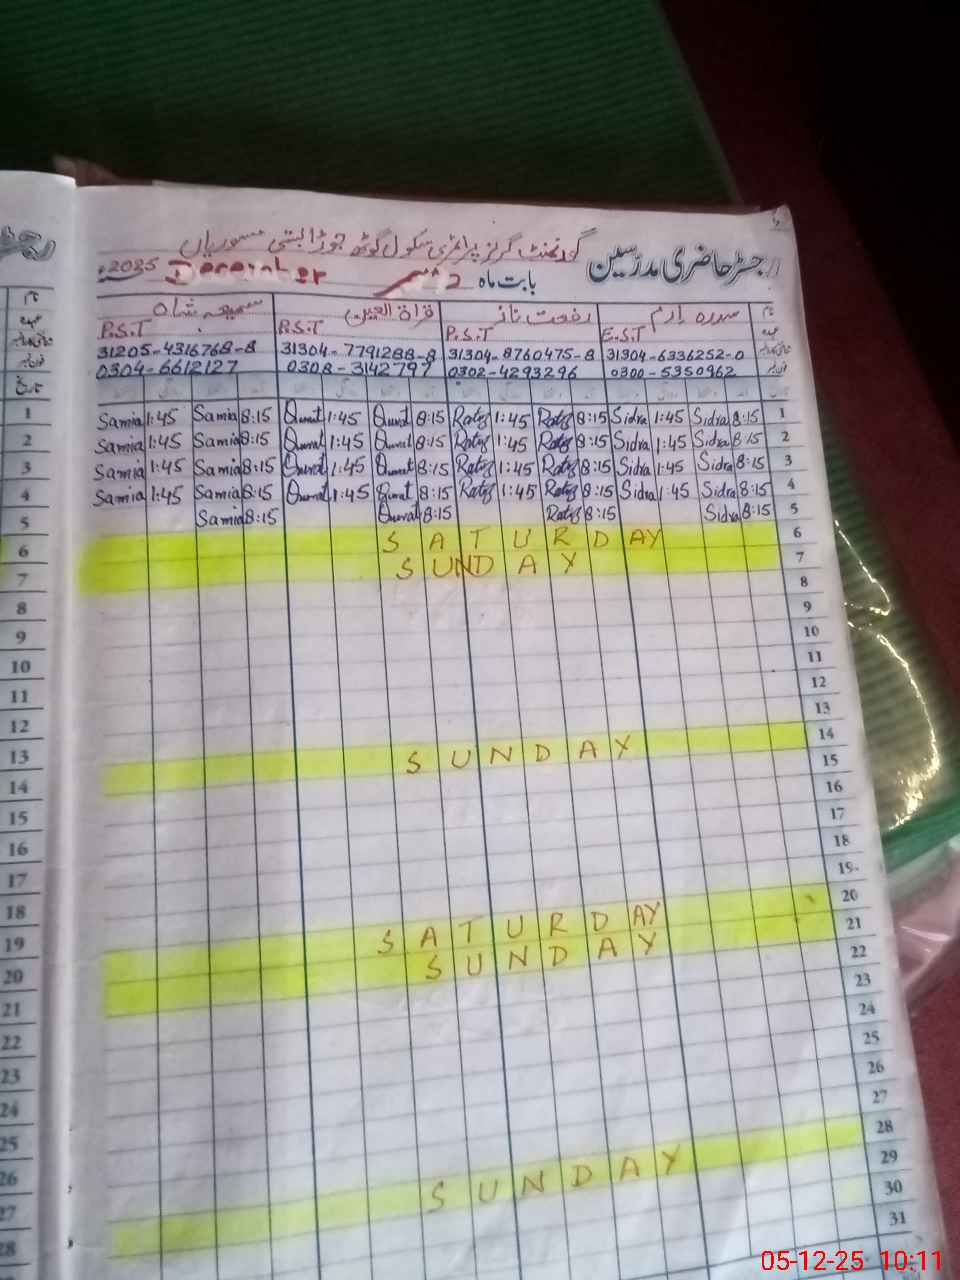 رجسٹر حاضری مدرسین گورنمنٹ گرلز پرائمری سکول گوٹھ جوڑا بستی
بابت ماہ دسمبر December 2025
نام سدرہ ارم رفعت ناز قراۃ العین سمیعہ شاہ
عہدہ E.S.T P.S.T P.S.T P.S.T
31205-4316768-8 31304-7791288-8 31304-8760475-8 31304-6336252-0
0304-6612127 0308-3142797 0302-4293296 0300-5350962
تاریخ
1 Samia 1:45 Samia 8:15 Qurat 1:45 Qurat 8:15 1:45 8:15 Sidra 1:45 Sidra 8:15 1
2 Samia 1:45 Samia 8:15 Qurat 1:45 Qurat 8:15 1:45 8:15 Sidra 1:45 Sidra 8:15 2
3 Samia 1:45 Samia 8:15 Qurat 1:45 Qurat 8:15 1:45 8:15 Sidra 1:45 Sidra 8:15 3
4 Samia 1:45 Samia 8:15 Qurat 1:45 Qurat 8:15 1:45 8:15 Sidra 1:45 Sidra 8:15 4
5 Samia 8:15 Qurat 8:15 8:15 Sidra 8:15 5
6 SATURDAY 6
7 SUNDAY 7
8 8
9 9
10 10
11 11
12 12
13 13
14 SUNDAY 14
15 15
16 16
17 17
18 18
19 19
20 SATURDAY 20
21 SUNDAY 21
22 22
23 23
24 24
25 25
26 26
27 27
28 SUNDAY 28
29
30
31
05-12-25 10:11